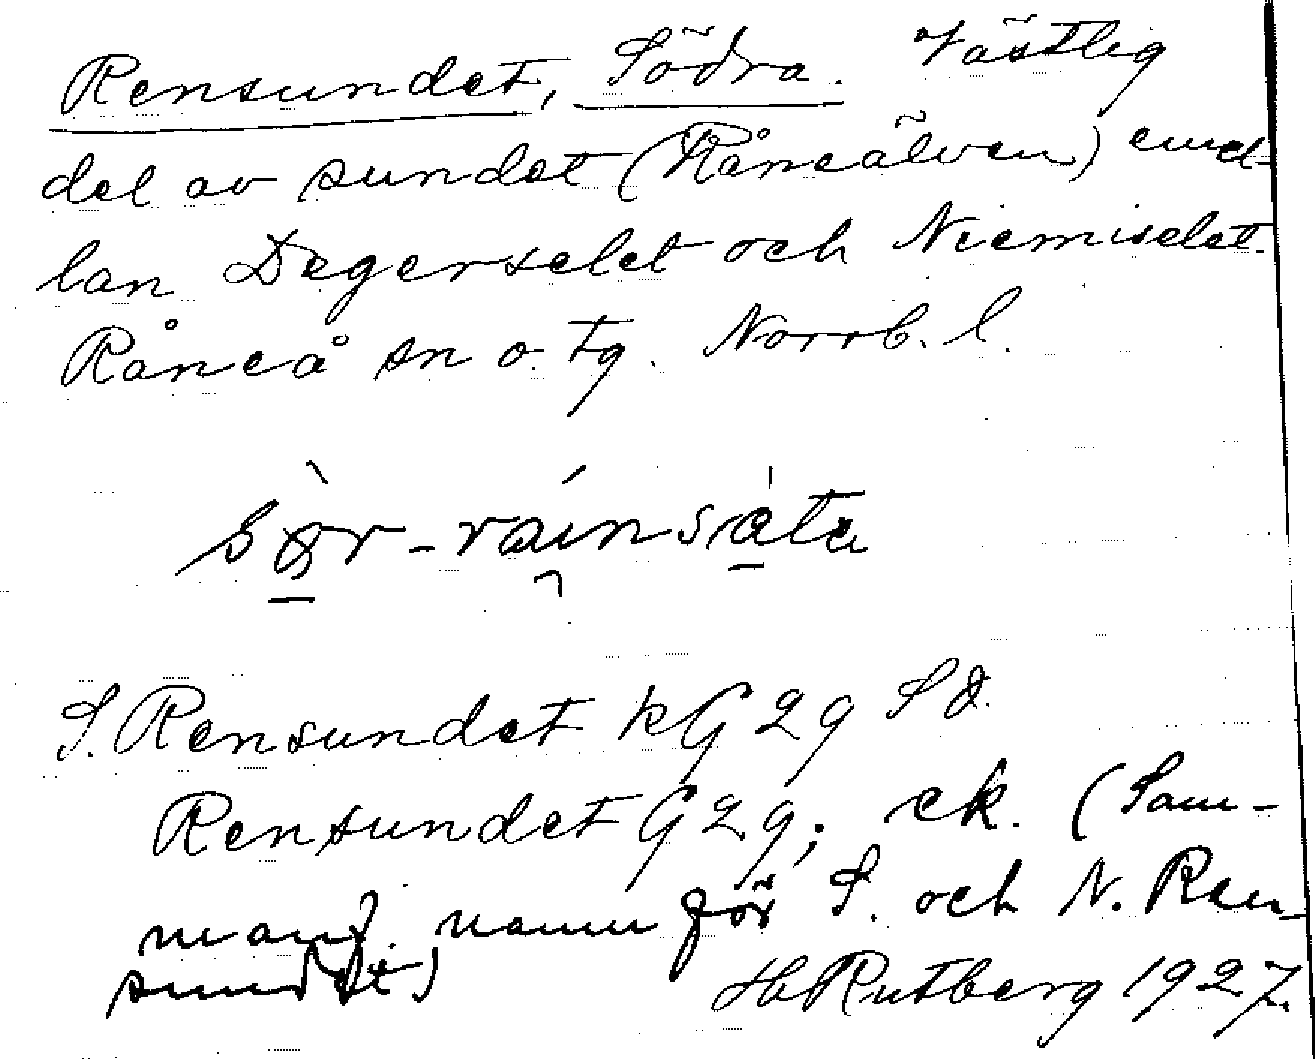 Rensundet, Södra. Västlig
del av sundet (Råneälven) emel-
lan Degerselet och Niemiselet.
Råneå sn o. tg. Norrb. l.
S. Rensundet kG2g Sd.
Rensundet G2g; ek. (Sam-
manf. namn för S. och N. Ren-
sundet)
H Rutberg 1927.